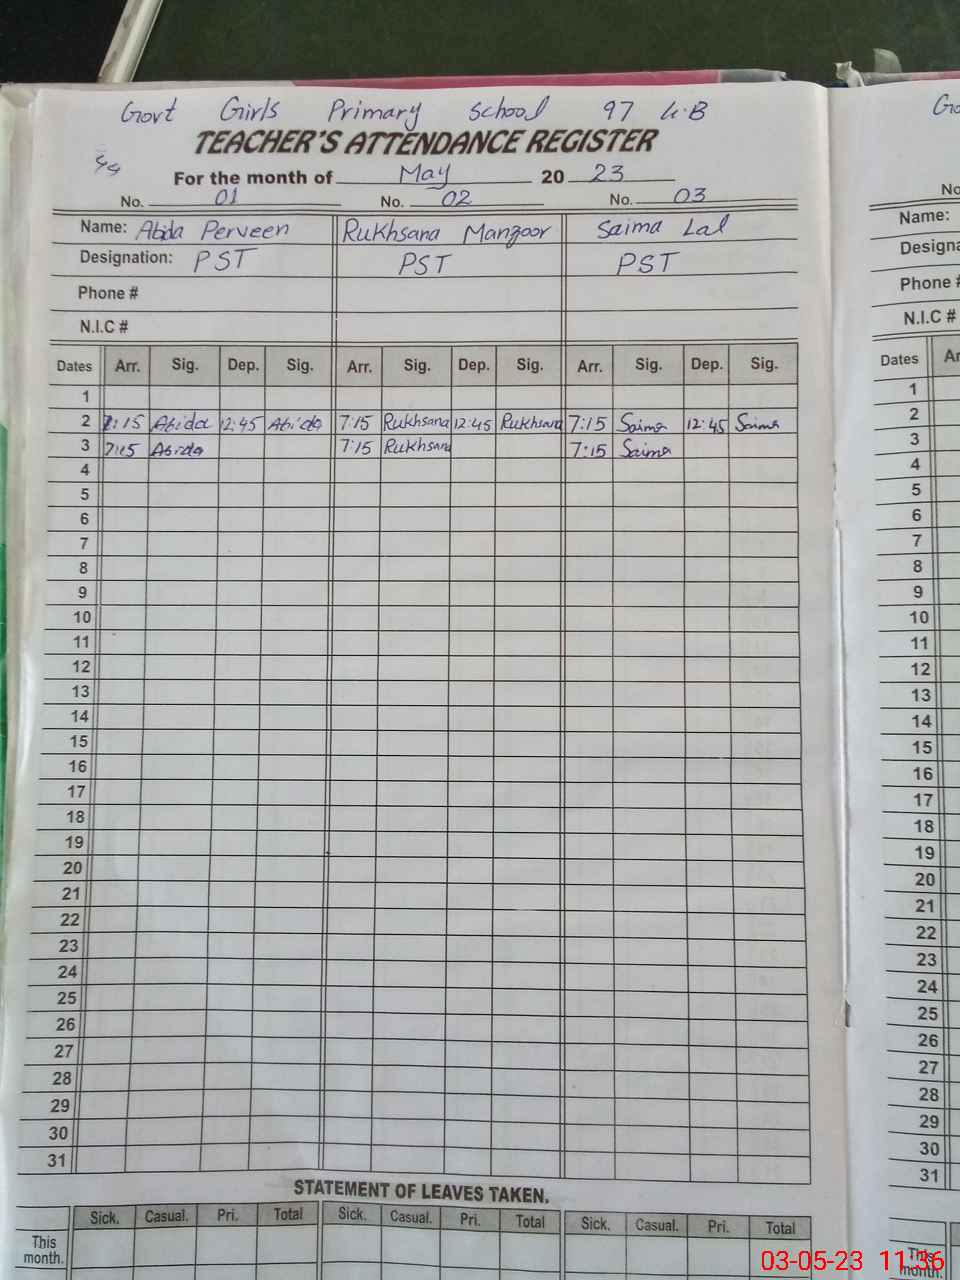 Govt Girls Primary School 97 G.B
TEACHER'S ATTENDANCE REGISTER
For the month of May 20 23
No. 01 No. 02 No. 03
Name: Abida Perveen Rukhsana Manzoor Saima Lal
Designation: PST PST PST
Phone #
N.I.C #
Dates Arr. Sig. Dep. Sig. Arr. Sig. Dep. Sig. Arr. Sig. Dep. Sig.
1
2 7:15 Abida 12:45 Abida 7:15 Rukhsana 12:45 Rukhsana 7:15 Saima 12:45 Saima
3 7:15 Abida 7:15 Rukhsana 7:15 Saima
4
5
6
7
8
9
10
11
12
13
14
15
16
17
18
19
20
21
22
23
24
25
26
27
28
29
30
31
STATEMENT OF LEAVES TAKEN.
Sick. Casual. Pri. Total Sick. Casual. Pri. Total Sick. Casual. Pri. Total
This
month.
Go
No
Name:
Designa
Phone #
N.I.C #
Dates Ar
1
2
3
4
5
6
7
8
9
10
11
12
13
14
15
16
17
18
19
20
21
22
23
24
25
26
27
28
29
30
31
This
month.
03-05-23 11:36